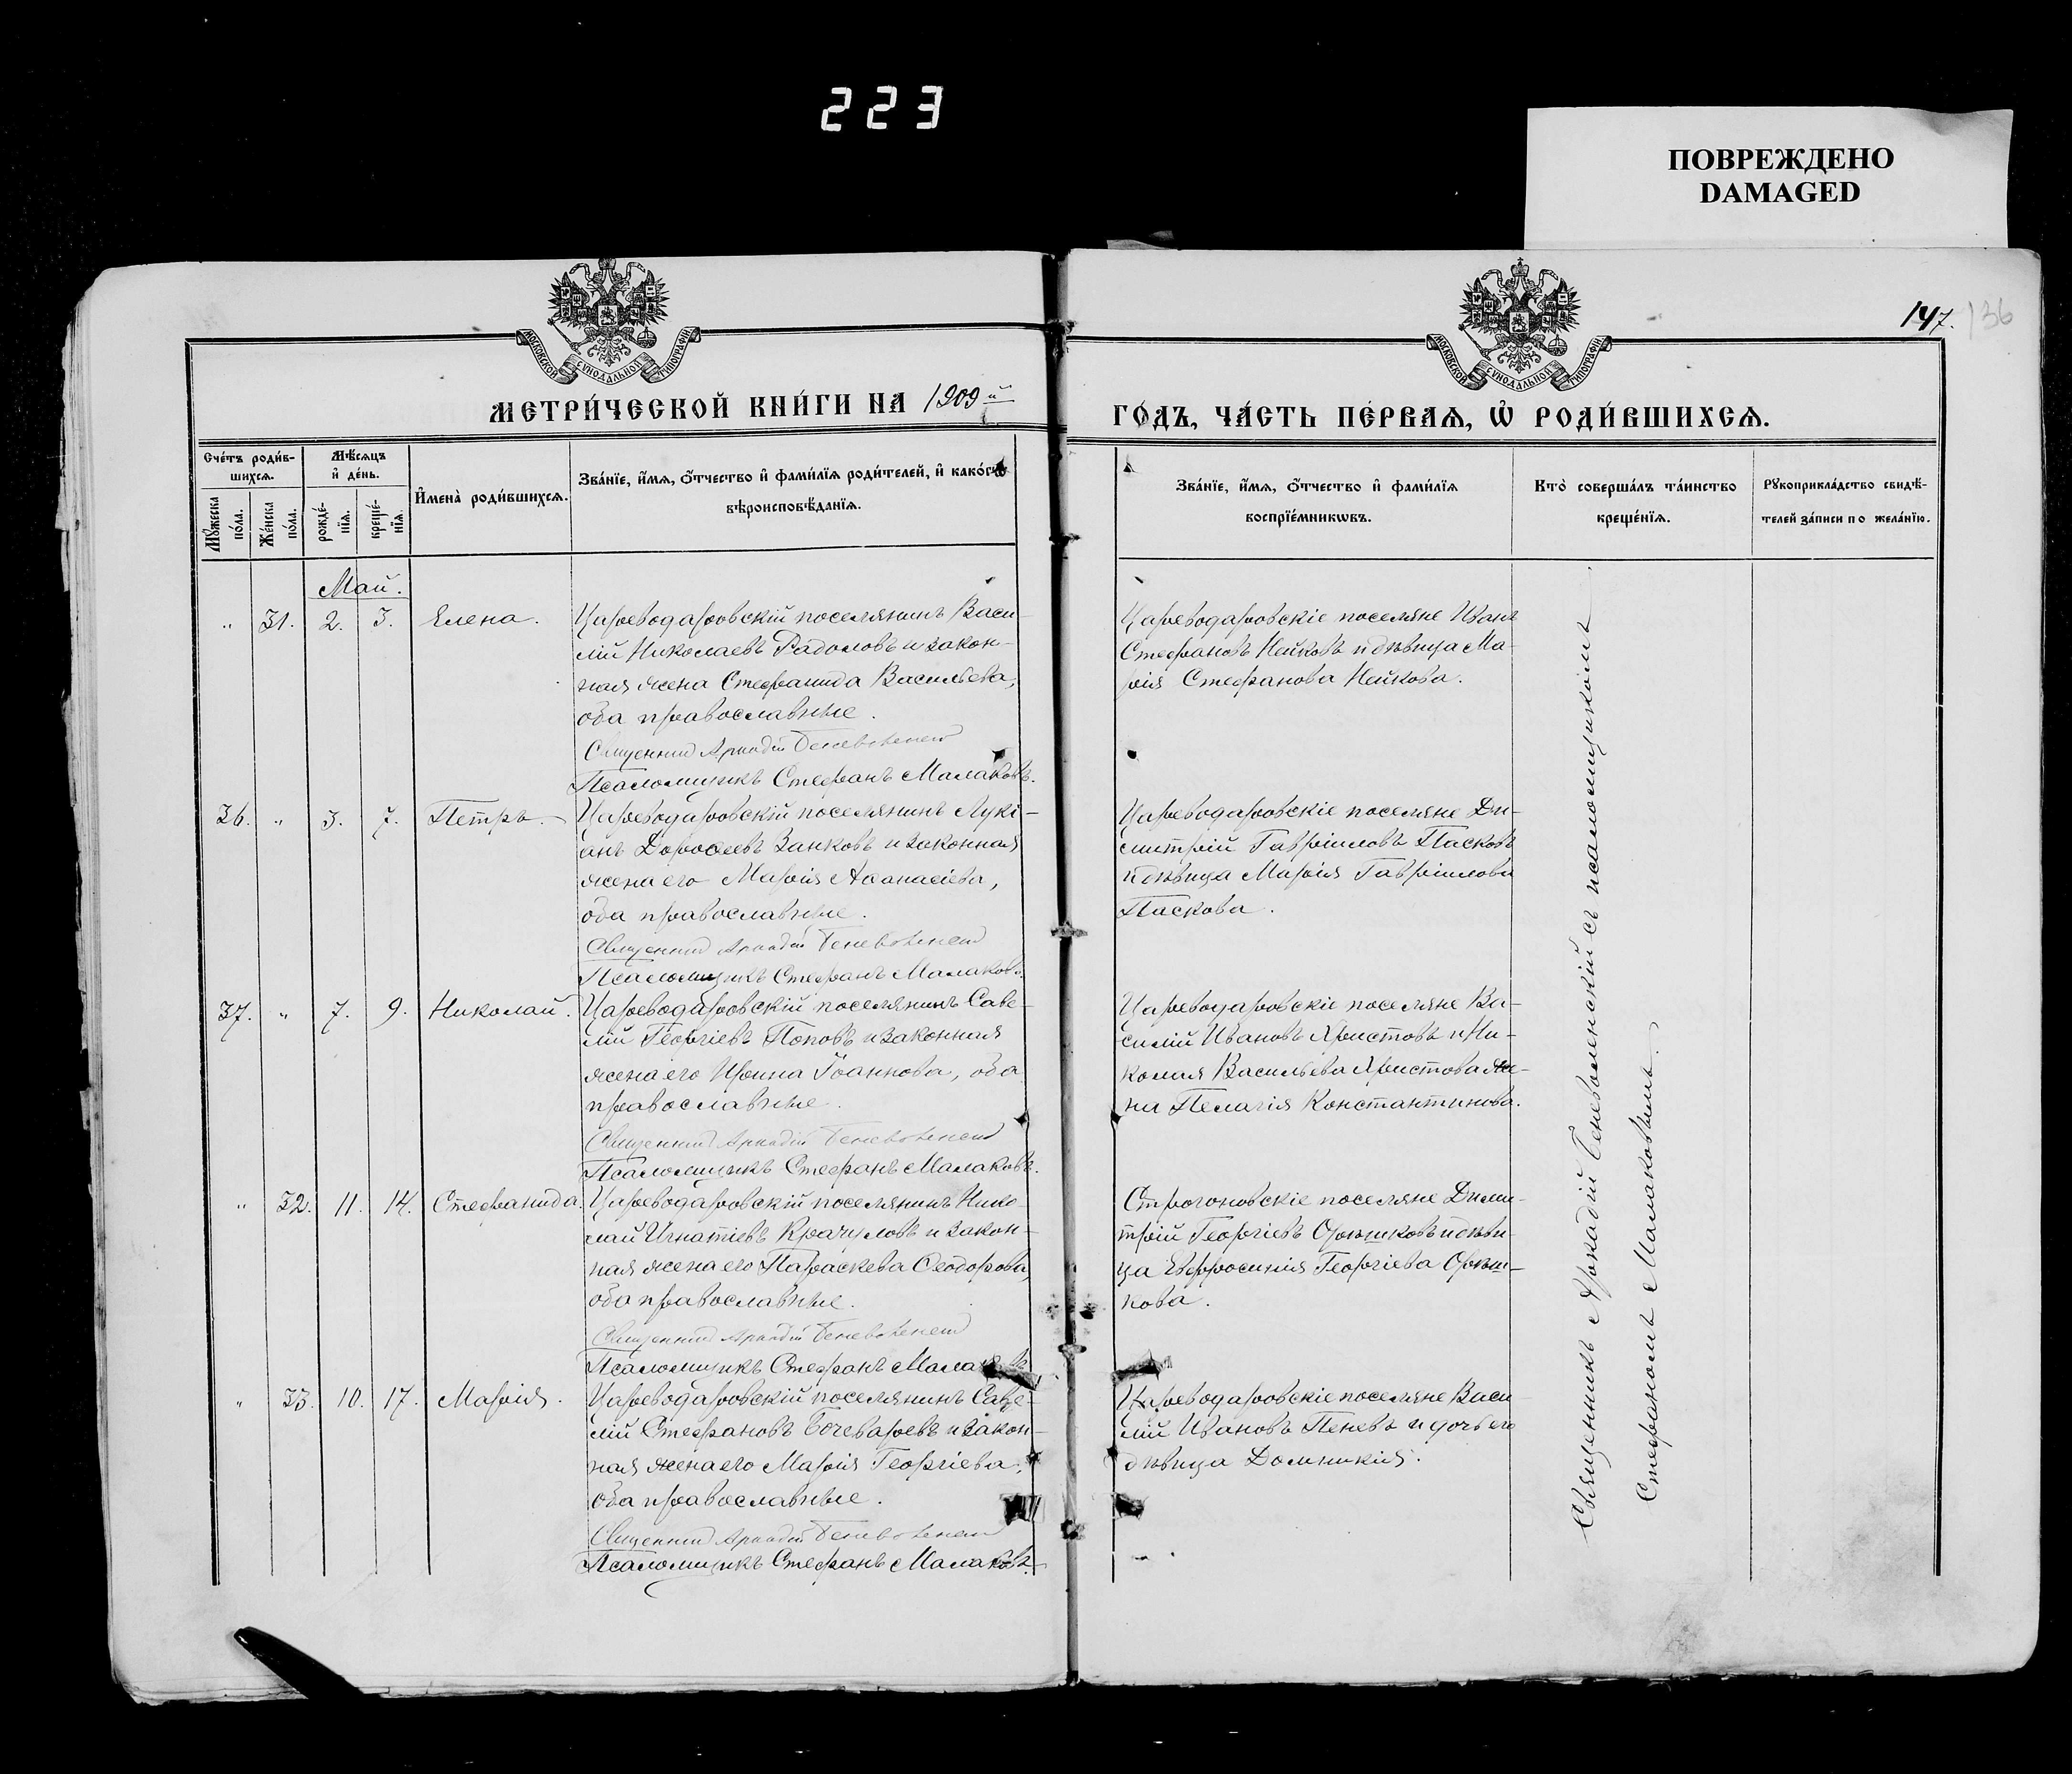 223
ПОВРЕЖДЕНО
DAMAGED
147.
136
МОСКОВСКОЙ СѴНОДАЛЬНОЙ ТИПОГРАФІИ
МОСКОВСКОЙ СѴНОДАЛЬНОЙ ТИПОГРАФІИ
МЕТРИ́ЧЕСКОЙ КНИ́ГИ НА 1909й
ГО́ДЪ, ЧА́СТЬ ПЕ́РВАѦ, Ѡ҆ РОДИ́ВШИХСѦ.
Сче́тъ роди́в-
шихсѧ.
Мꙋ́жеска по́ла.
Же́нска по́ла.
Мѣ́сѧцъ
и҆ де́нь.
рожде́-
нїѧ.
креще́-
нїѧ.
И҆мена̀ роди́вшихсѧ.
Зва́нїе, и҆́мѧ, ѻ҆́тчество и҆ фами́лїѧ роди́телей, и҆ како́гѡ
вѣроисповѣ́данїѧ.
Зва́нїе, и҆́мѧ, ѻ҆́тчество и҆ фами́лїѧ
воспрїе́мникѡвъ.
Кто̀ соверша́лъ та́инство
креще́нїѧ.
Рꙋкоприкла́дство свидѣ́-
телей за́писи по жела́нїю.
Май.
" 31. 2. 3. Елена.
Цареводаровскій поселянинъ Васи-
лій Николаевъ Радоловъ и закон-
ная жена Стефанида Васильева,
оба православные.
Священникъ Аркадій Беневоленскій
Псаломщикъ Стефанъ Малаковъ.
Цареводаровскіе поселяне Иванъ
Стефановъ Нейковъ и дѣвица Ма-
рія Стефанова Нейкова.
36. " 3. 7. Петръ.
Цареводаровскій поселянинъ Лукі-
анъ Дороѳеевъ Занковъ и законная
жена его Марія Аѳанасіева,
оба православные.
Священникъ Аркадій Беневоленскій
Псаломщикъ Стефанъ Малаковъ.
Цареводаровскіе поселяне Ди-
митрій Гавріиловъ Пасковъ
и дѣвица Марія Гавріилова
Паскова.
37. " 7. 9. Николай.
Цареводаровскій поселянинъ Саве-
лій Георгіевъ Поповъ и законная
жена его Ирина Іоаннова, оба
православные.
Священникъ Аркадій Беневоленскій
Псаломщикъ Стефанъ Малаковъ.
Цареводаровскіе поселяне Ва-
силій Ивановъ Христовъ и Ни-
колая Васильева Христова же-
на Пелагія Константинова.
" 32. 11. 14. Стефанида.
Цареводаровскій поселянинъ Нико-
лай Игнатіевъ Крачуловъ и закон-
ная жена его Параскева Ѳеодорова,
оба православные.
Священникъ Аркадій Беневоленскій
Псаломщикъ Стефанъ Малаковъ
Строгоновскіе поселяне Дими-
трій Георгіевъ Орѣшковъ и дѣви-
ца Евфросинія Георгіева Орѣш-
кова.
" 33. 10. 17. Марія.
Цареводаровскій поселянинъ Саве-
лій Стефановъ Бочеваровъ и закон-
ная жена его Марія Георгіева,
оба православные.
Священникъ Аркадій Беневоленскій
Псаломщикъ Стефанъ Малаковъ.
Цареводаровскіе поселяне Васи-
лій Ивановъ Пеневъ и дочь его
дѣвица Домникія.
Священникъ Аркадій Беневоленскій съ псаломщикомъ
Стефаномъ Малаковымъ.